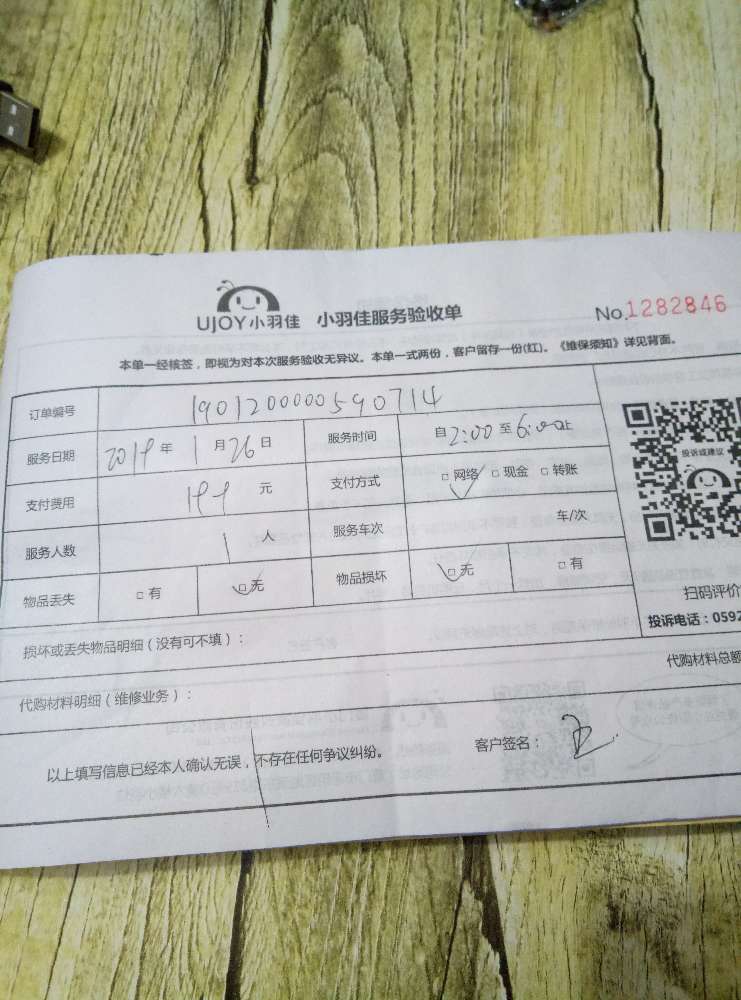 UJOY小羽佳 小羽佳服务验收单 No.1282846
本单一经核签，即视为对本次服务验收无异议。本单一式两份，客户留存一份(红)。《维保须知》详见背面。
订单编号 1901200000590714
服务日期 2019年1月26日 服务时间 自2:00至6:00止
支付费用 199元 支付方式 □网络 □现金 □转账
服务人数 1人 服务车次 车/次
物品丢失 □有 □无 物品损坏 □无 □有
投诉或建议
扫码评价
投诉电话：0592
损坏或丢失物品明细（没有可不填）：
代购材料总额
代购材料明细（维修业务）：
以上填写信息已经本人确认无误，不存在任何争议纠纷。 客户签名：